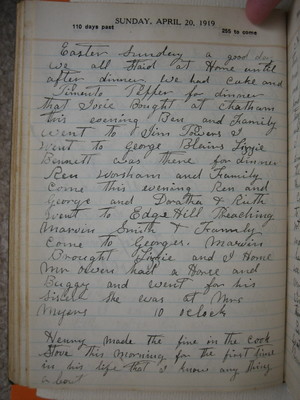 SUNDAY, APRIL 20, 1919
110 days past 255 to come
Easter Sunday a good day
we all staid at Home until
after dinner we had cake and
Pimento Pepper for dinner
that Josie Bought at Chatham
this evening Ben and Family
went to Jim Towers I
went to George Blairs Lizzie
Bennett was there for dinner
Ren Worsham and Family
Come this evening Ren and
George and Doratha & Ruth
went to Edge Hill Preaching
Marvin Smith & Family
Come to Georges. Marvin
Brought Lizzie and I Home
Mr Owen had a Horse and
Buggy and went for his
she was at Mrs
Meyers 10 oclock
Henny made the fire in the cook
stove this morning for the first time
in his life that I know any thing
about